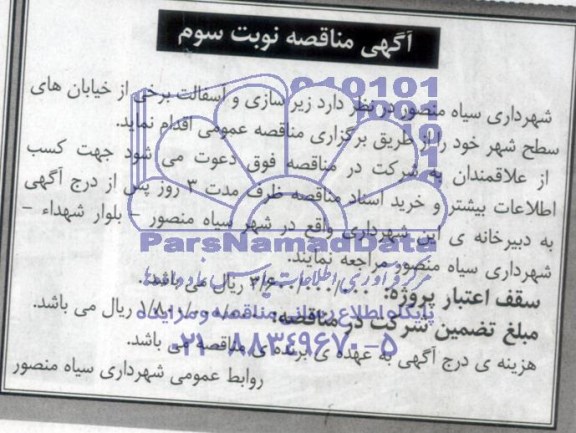 آگهی مناقصه نوبت سوم
شهرداری سیاه منصور در نظر دارد زیر سازی و اسفالت برخی از خیابان های
سطح شهر خود را از طریق برگزاری مناقصه عمومی اقدام نماید.
از علاقمندان به شرکت در مناقصه فوق دعوت می شود جهت کسب
اطلاعات بیشتر و خرید اسناد مناقصه ظرف مدت ۳ روز پس از درج آگهی
به دبیرخانه ی این شهرداری واقع در شهر سیاه منصور – بلوار شهداء –
شهرداری سیاه منصور مراجعه نمایند.
سقف اعتبار پروژه: ریال می باشد.
مبلغ تضمین شرکت در مناقصه: ریال می باشد.
هزینه ی درج آگهی به عهده ی برنده ی مناقصه می باشد.
روابط عمومی شهرداری سیاه منصور
ParsNamadData
پایگاه اطلاع رسانی مناقصه و مزایده
۰۲۱-۸۸۳۴۹۶۷۰-۵